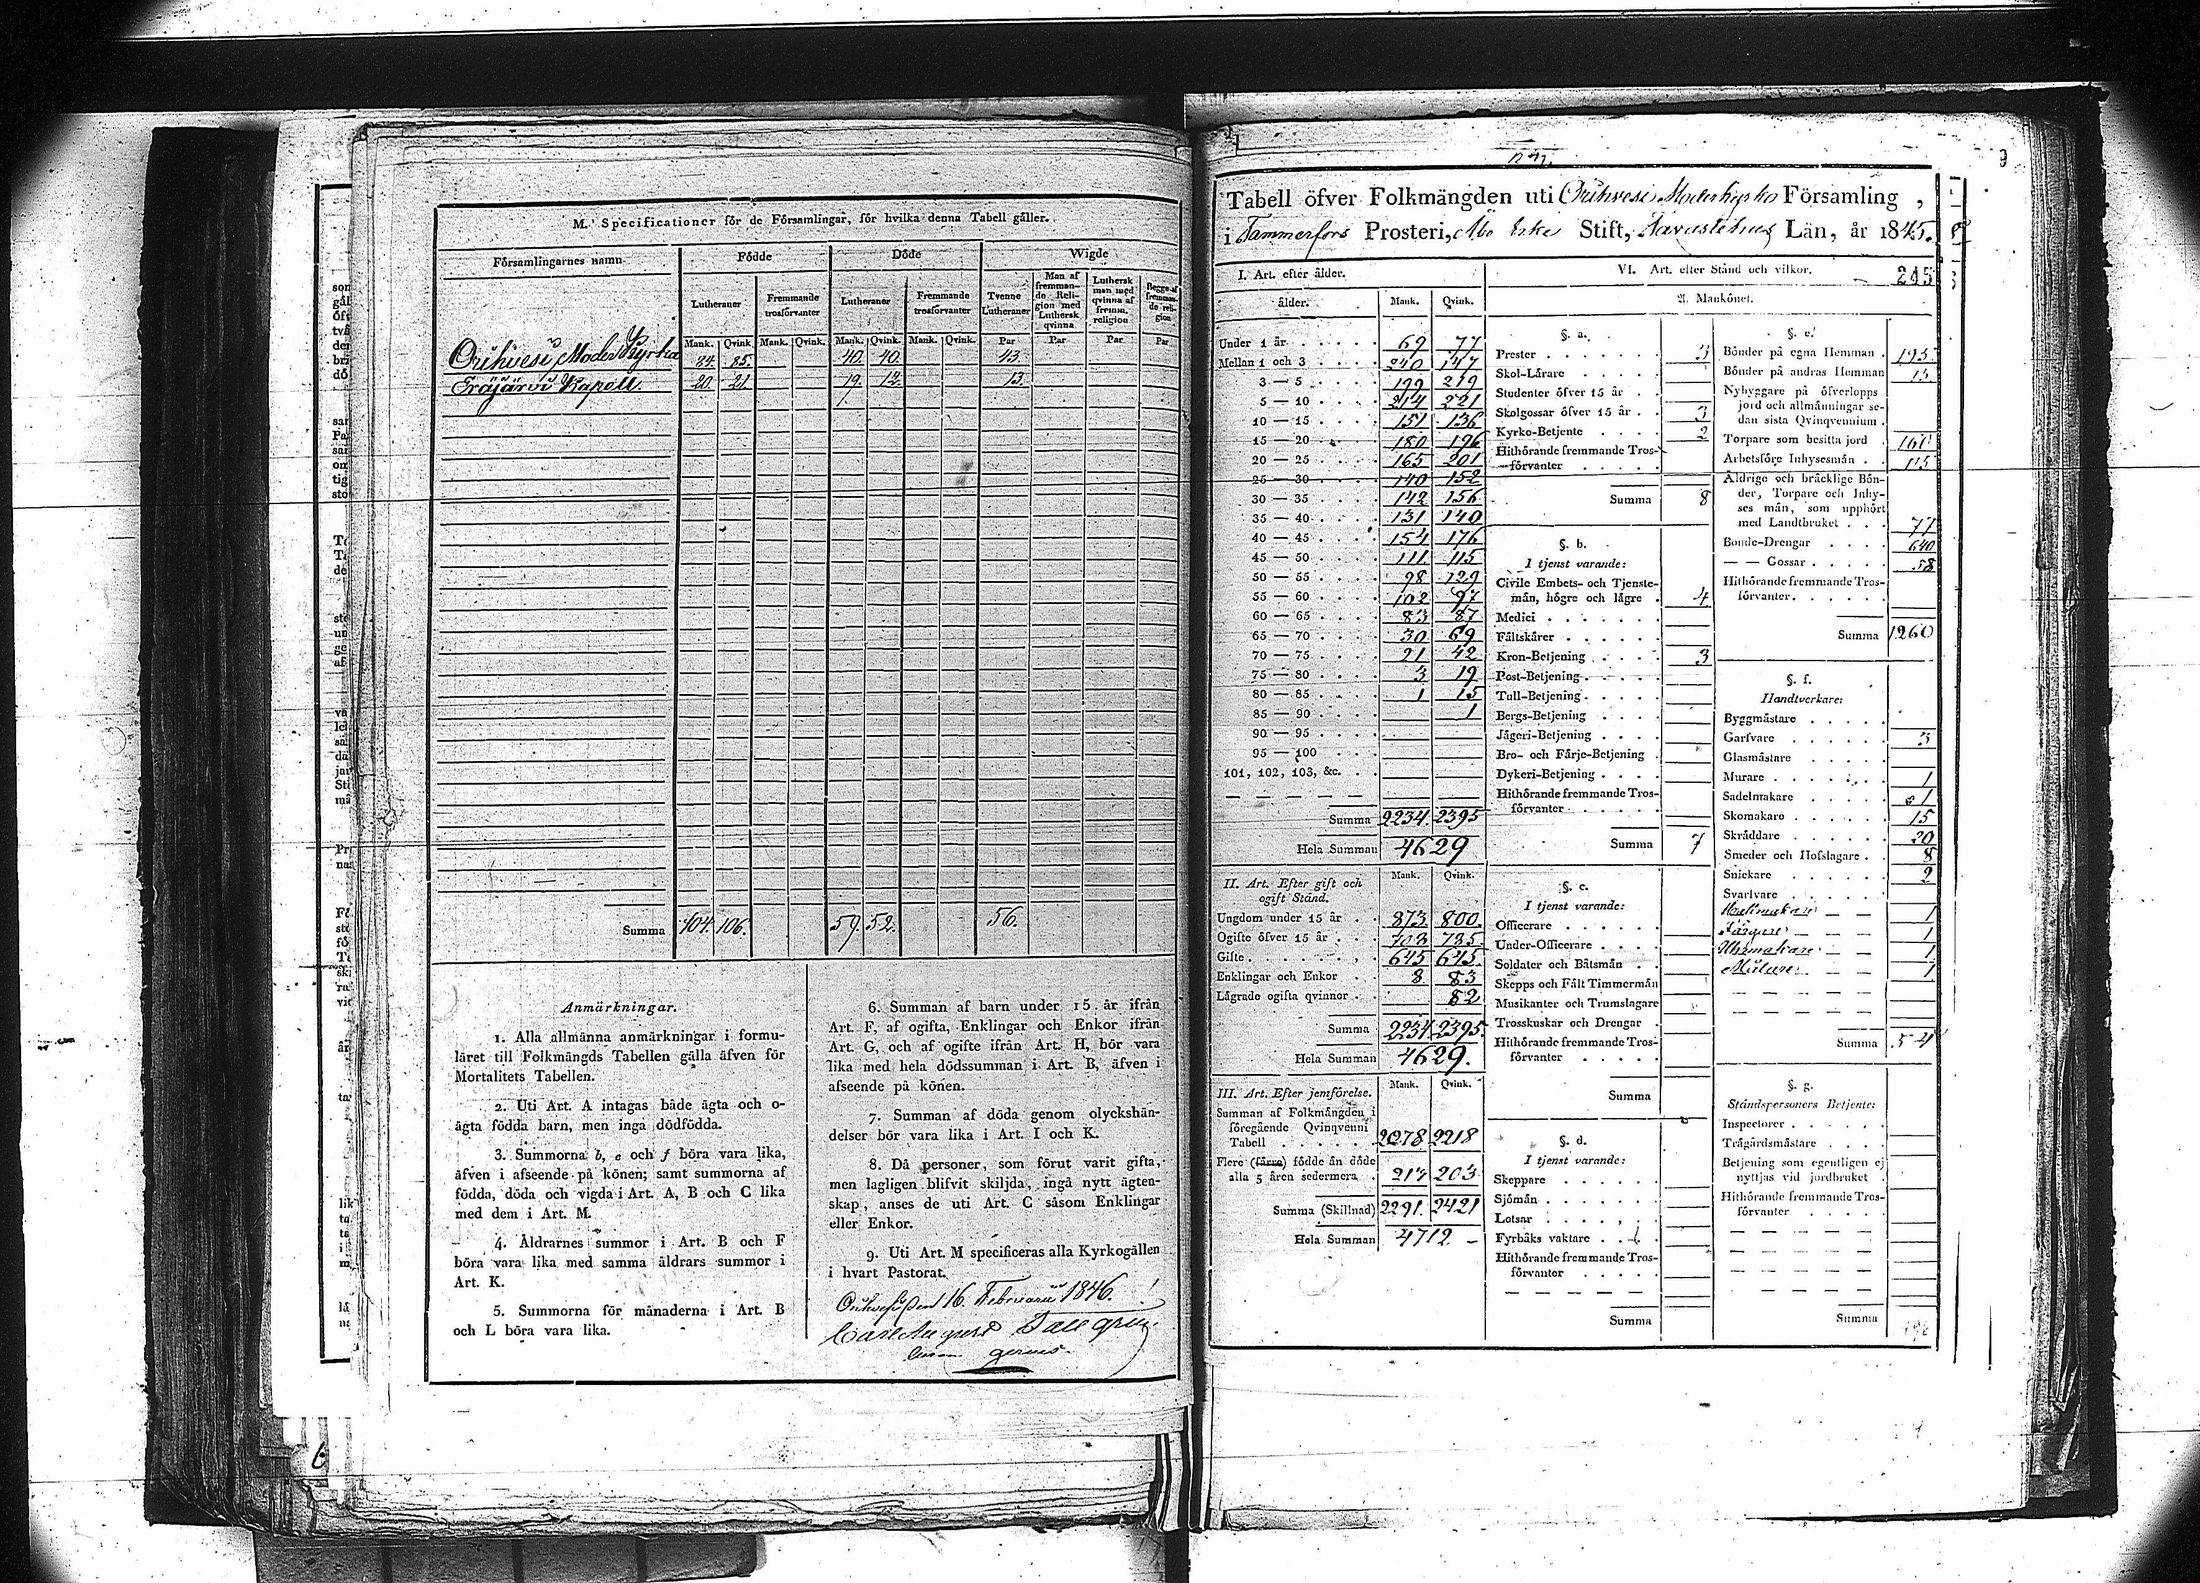 M. Specificationer för de Församlingar, för hvilka denna Tabell gäller.
Församlingarnes namn.
Födde
Döde
Wigde
Lutheraner
Fremmande trosförvanter
Lutheraner
Fremmande trosförvanter
Tvenne Lutheraner
Man af fremmande Religion med Luthersk qvinna
Luthersk man med qvinna af fremm. religion
Begge af fremmande religion
Mank. Qvink. Mank. Qvink. Mank. Qvink. Mank. Qvink. Par Par Par Par
Orihvesi Moder Kyrka 84. 85. 40. 40. 43.
Eräjärvi Kapell 20. 21. 19. 12. 13.
Summa 104. 106. 59. 52. 56.
Anmärkningar.
1. Alla allmänna anmärkningar i formu-
läret till Folkmängds Tabellen gälla äfven för
Mortalitets Tabellen.
2. Uti Art. A intagas både ägta och o-
ägta födda barn, men inga dödfödda.
3. Summorna b, e och f böra vara lika,
äfven i afseende på könen; samt summorna af
födda, döda och vigda i Art. A, B och C lika
med dem i Art. M.
4. Åldrarnes summor i Art. B och F
böra vara lika med samma åldrars summor i
Art. K.
5. Summorna för månaderna i Art. B
och L böra vara lika.
6. Summan af barn under 15 år ifrån
Art. F, af ogifta, Enklingar och Enkor ifrån
Art. G, och af ogifte ifrån Art. H, bör vara
lika med hela dödssumman i Art. B, äfven i
afseende på könen.
7. Summan af döda genom olyckshän-
delser bör vara lika i Art. I och K.
8. Då personer, som förut varit gifta,
men lagligen blifvit skiljda, ingå nytt ägten-
skap, anses de uti Art. C såsom Enklingar
eller Enkor.
9. Uti Art. M specificeras alla Kyrkogällen
i hvart Pastorat.
den 16. Februarii 1846.
Carl August
Tabell öfver Folkmängden uti Orihvesi Moderkyrko Församling,
i Tammerfors Prosteri, Åbo Erke Stift, Tavastehus Län, år 1845.
I. Art. efter ålder.
ålder. Mank. Qvink.
Under 1 år 69 77
Mellan 1 och 3 240 147
3 — 5 199 219
5 — 10 214 221
10 — 15 151 136
15 — 20 180 196
20 — 25 165 201
25 — 30 140 152
30 — 35 142 156
35 — 40 131 140
40 — 45 154 176
45 — 50 111 115
50 — 55 98 129
55 — 60 102 97
60 — 65 83 87
65 — 70 30 69
70 — 75 21 42
75 — 80 3 19
80 — 85 1 15
85 — 90 1
90 — 95
95 — 100
101, 102, 103, &c.
Summa 2234. 2395
Hela Summan 4629
II. Art. Efter gift och
ogift Stånd.
Mank. Qvink.
Ungdom under 15 år 873 800
Ogifte öfver 15 år 703 735
Gifte 645 645
Enklingar och Enkor 8 83
Lägrade ogifta qvinnor 82
Summa 2234. 2395
Hela Summan 4629.
III. Art. Efter jemförelse.
Mank. Qvink.
Summan af Folkmängden i
föregående Qvinqvenni
Tabell 2278 2218
Flere (färre) födde än döde
alla 5 åren sedermera 203
Summa (Skillnad) 2291. 2421
Hela Summan 4712
VI. Art. efter Stånd och vilkor. 245
A. Mankönet.
§. a.
Prester 3
Skol-Lärare
Studenter öfver 15 år
Skolgossar öfver 15 år 3
Kyrko-Betjente 2
Hithörande fremmande Tros-
förvanter
Summa 8
§. b.
I tjenst varande:
Civile Embets- och Tjenste-
män, högre och lägre 4
Medici
Fältskärer
Kron-Betjening 3
Post-Betjening
Tull-Betjening
Bergs-Betjening
Jägeri-Betjening
Bro- och Färje-Betjening
Dykeri-Betjening
Hithörande fremmande Tros-
förvanter
Summa 7
§. c.
I tjenst varande:
Officerare
Under-Officerare
Soldater och Båtsmän
Skepps och Fält Timmermän
Musikanter och Trumslagare
Trosskuskar och Drengar
Hithörande fremmande Tros-
förvanter
Summa
§. d.
I tjenst varande:
Skeppare
Sjömän
Lotsar
Fyrbåks vaktare
Hithörande fremmande Tros-
förvanter
Summa
§. e.
Bönder på egna Hemman 195
Bönder på andras Hemman 15
Nybyggare på öfverlopps
jord och allmänningar se-
dan sista Qvinqvennium
Torpare som besitta jord 160
Arbetsföre Inhysesmän 115
Åldrige och bräcklige Bön-
der, Torpare och Inhy-
ses män, som upphört
med Landtbruket 77
Bonde-Drengar 640
— — Gossar 58
Hithörande fremmande Tros-
förvanter
Summa 1260
§. f.
Handtverkare:
Byggmästare
Garfvare 3
Glasmästare
Murare 1
Sadelmakare 1
Skomakare 15
Skräddare 20
Smeder och Hofslagare 8
Snickare 2
Svarfvare
1
Färgare 1
Urmakare 1
Målare 1
Summa 54
§. g.
Ståndspersoners Betjente:
Inspectorer
Trägårdsmästare
Betjening som egentligen ej
nyttjas vid jordbruket
Hithörande fremmande Tros-
förvanter
Summa